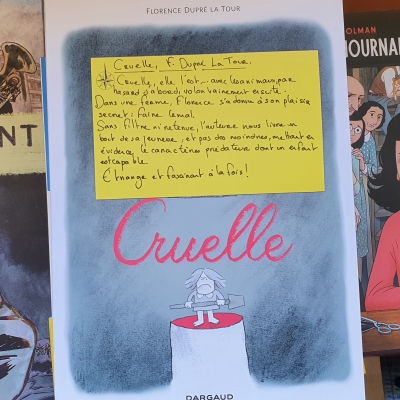 FLORENCE DUPRÉ LA TOUR
Cruelle, F. Dupré La Tour.
Cruelle, elle l'est,... avec les animaux, par
hasard d'abord, volontairement ensuite.
Dans une ferme, Florence s'adonne à son plaisir
secret : faire le mal.
Sans filtre ni retenue, l'auteure nous livre un
bout de sa jeunesse, et pas des moindres, mettant en
évidence le caractère prédateur dont un enfant
est capable.
Etrange et fascinant à la fois !
Cruelle
DARGAUD
NT
OLMAN
JOURNA